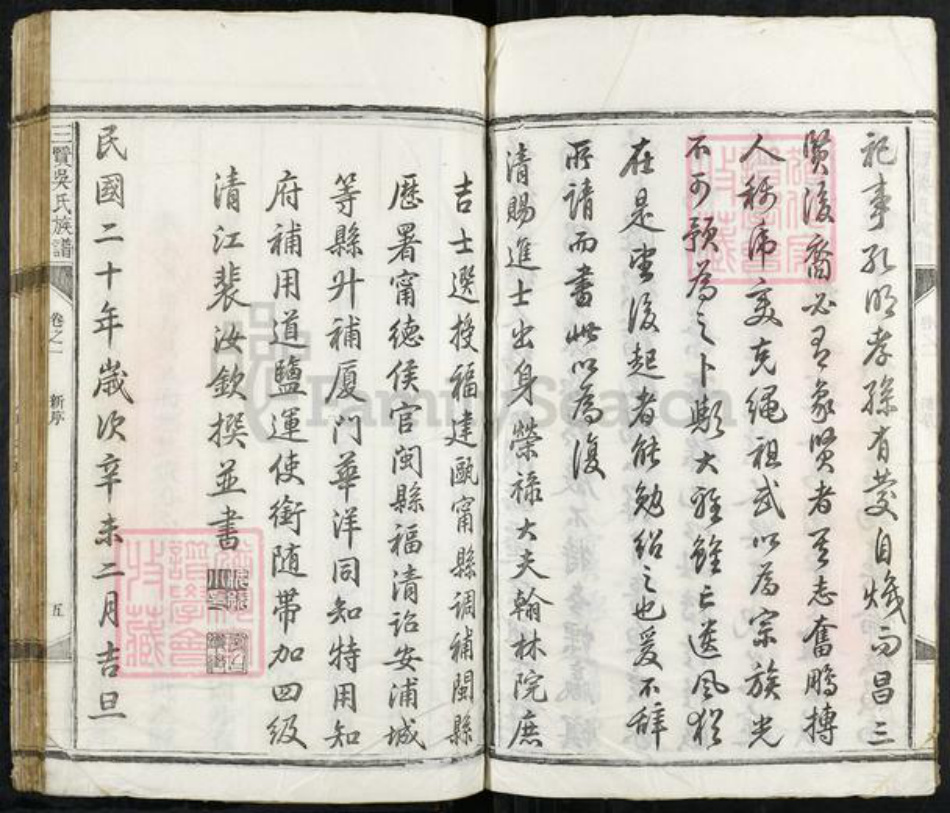 祀事孔明孝孫有慶自熾而昌三
賢後裔必有象賢者有志奮鵬摶
人稱席美克繩祖武以為宗族光
不可預為之卜歟大雅雖亡遺風猶
在是望後起者能勉紹之也爰不辭
所請而書此以為復
清賜進士出身榮祿大夫翰林院庶
吉士選授福建甌甯縣調補閩縣
歷署甯德侯官閩縣福清詔安浦城
等縣升補廈門華洋同知特用知
府補用道鹽運使銜隨帶加四級
清江裴汝欽撰並書
民國二十年歲次辛未二月吉旦
三賢吳氏族譜
卷之一
新序
五
譜學會
收藏
FamilySearch